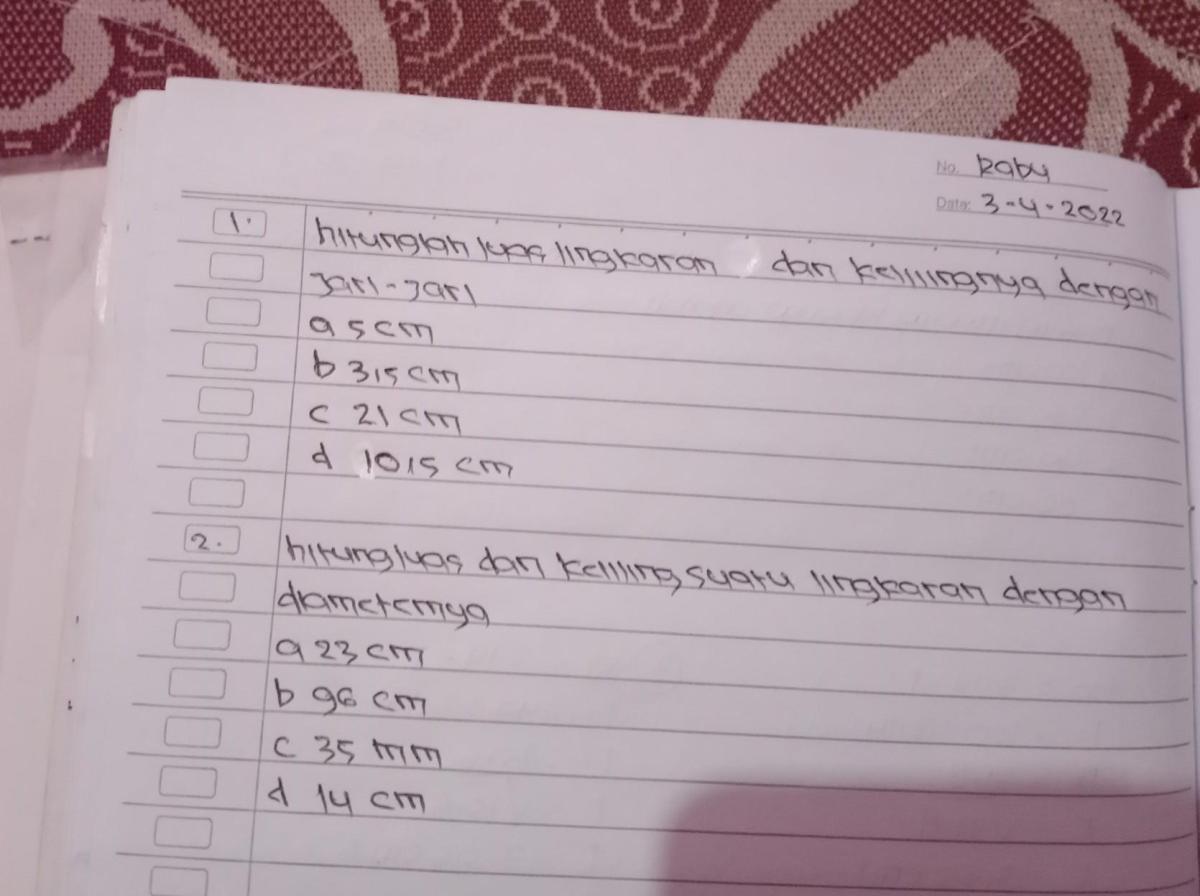 No. Rabu
Date: 3-4-2022
1. hitunglah luas lingkaran dan kelilingnya dengan
Jari-Jari
a 5 cm
b 3,5 cm
c 21 cm
d 10,5 cm
2. hitung luas dan keliling suatu lingkaran dengan
diameternya
a 23 cm
b 96 cm
c 35 mm
d 14 cm